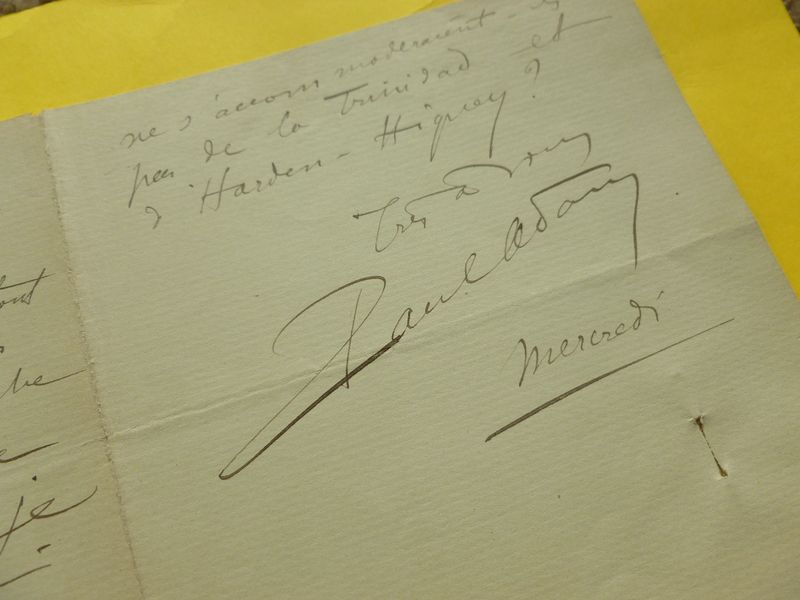 ne s'accommoderaient-ils
pas de la Trinidad et
d'Harden-Hiquey?
Très à vous
Paul Adam
Mercredi
tout
je